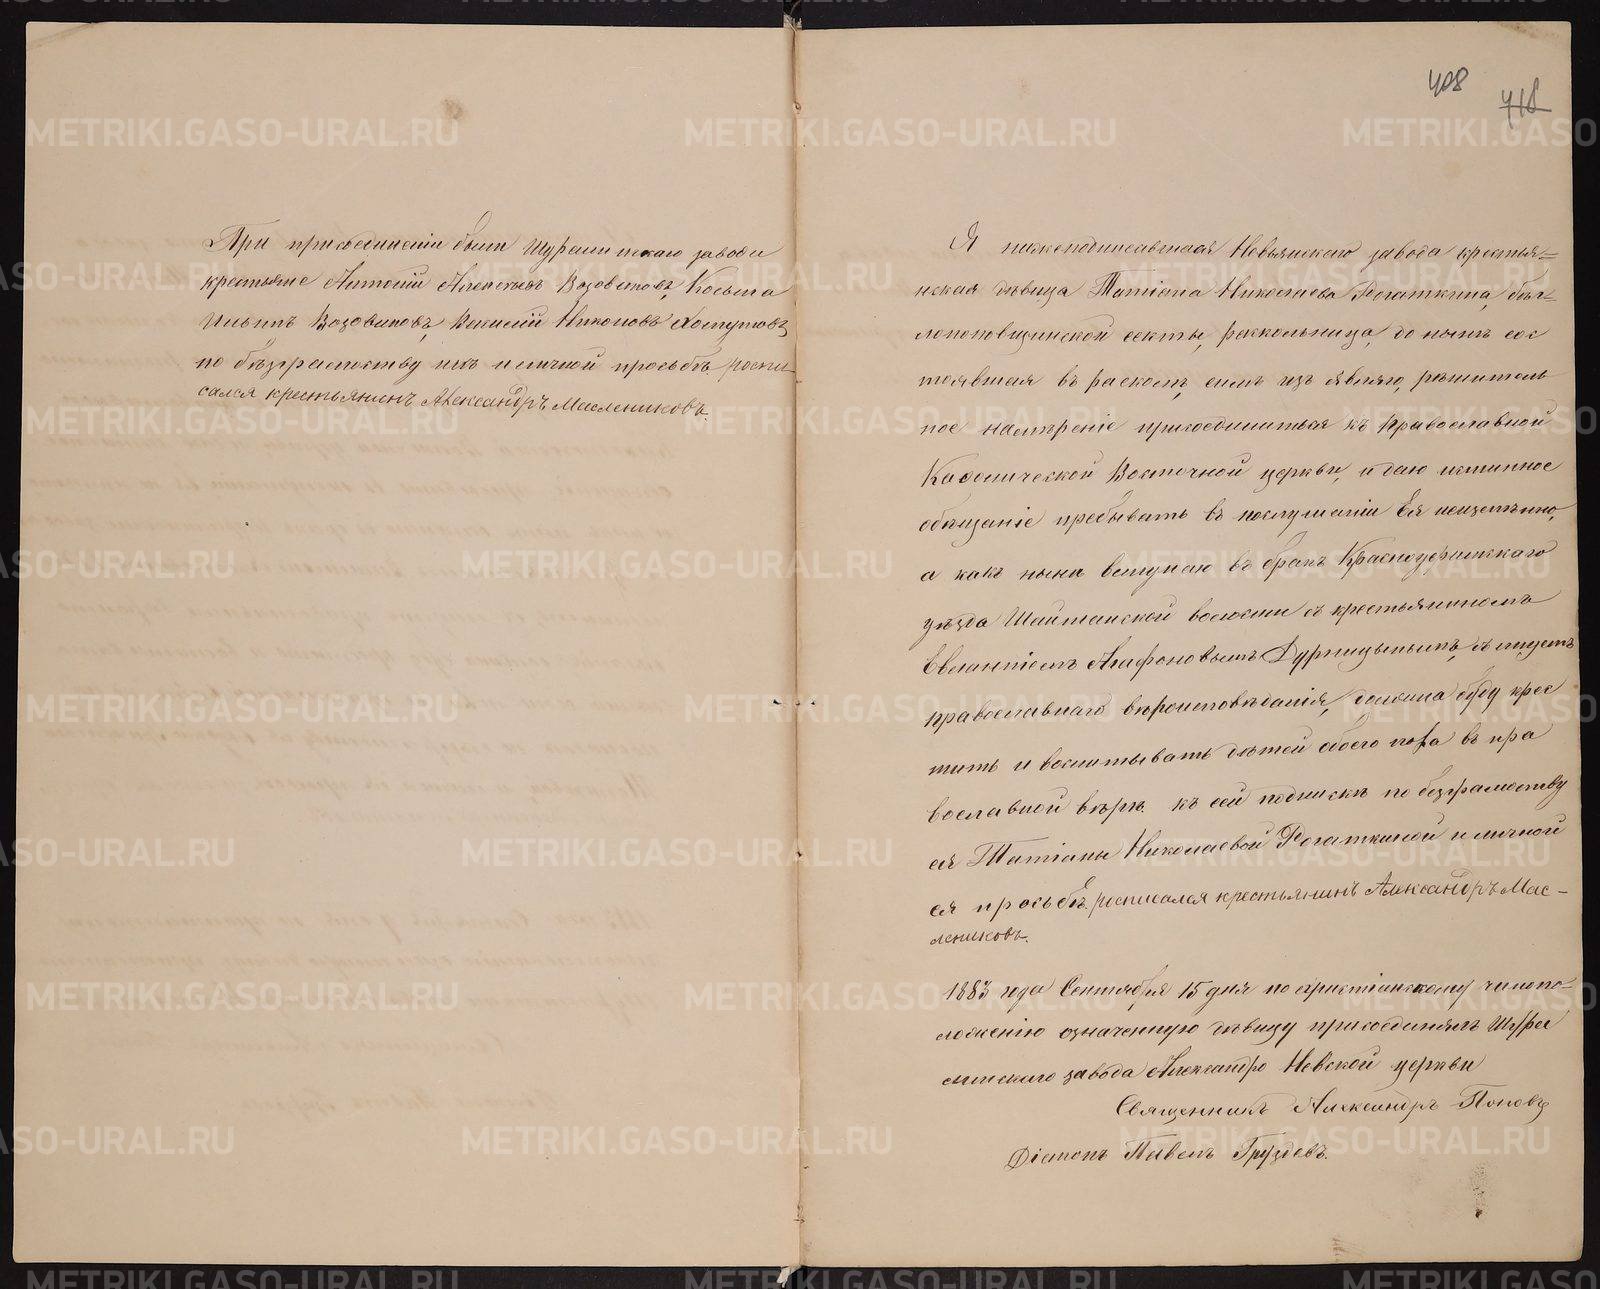 При присоединении были Шуралинскаго завода
крестьяне Антоний Алексѣевъ Возовиковъ, Косьма
Ильинъ Возовиковъ, Василий Никоновъ Хомутовъ,
по безграмотству ихъ и личной просьбѣ роспи
сался крестьянинъ Александръ Маслениковъ.
408
418
Я нижеподписавшаяся Невьянскаго завода крестья=
нская дѣвица Татiана Николаева Рогаткина, бѣг=
лопоповщинской секты, раскольница, до нынѣ сос
тоявшая въ расколѣ, симъ изъявляю, рѣшитель
ное намѣренiе присоединиться къ Православной
Каѳолической Восточной церкви, и даю истинное
обѣщанiе пребывать въ послушанiи Ея неизмѣнно,
а какъ ныня вступаю въ бракъ Красноуфимскаго
уѣзда Шайтанской волости съ крестьяниномъ
Евлампiемъ Агафоновымъ Дурницынымъ,
православнаго вѣроисповѣданiя, должна буду крес
тить и воспитывать дѣтей обоего пола въ пра
вославной вѣрѣ. къ сей подпискѣ по безграмотству
ея Татiаны Николаевой Рогаткиной и личной
ея просьбѣ росписался крестьянинъ Александръ Мас-
лениковъ.
1883 года Сентября 15 дня по христiанскому чинопо=
ложенiю означенную дѣвицу присоединилъ Шура
линскаго завода Александро Невской церкви
Священникъ Александръ Поповъ
Дiаконъ Павелъ Груздевъ.
METRIKI.GASO-URAL.RU